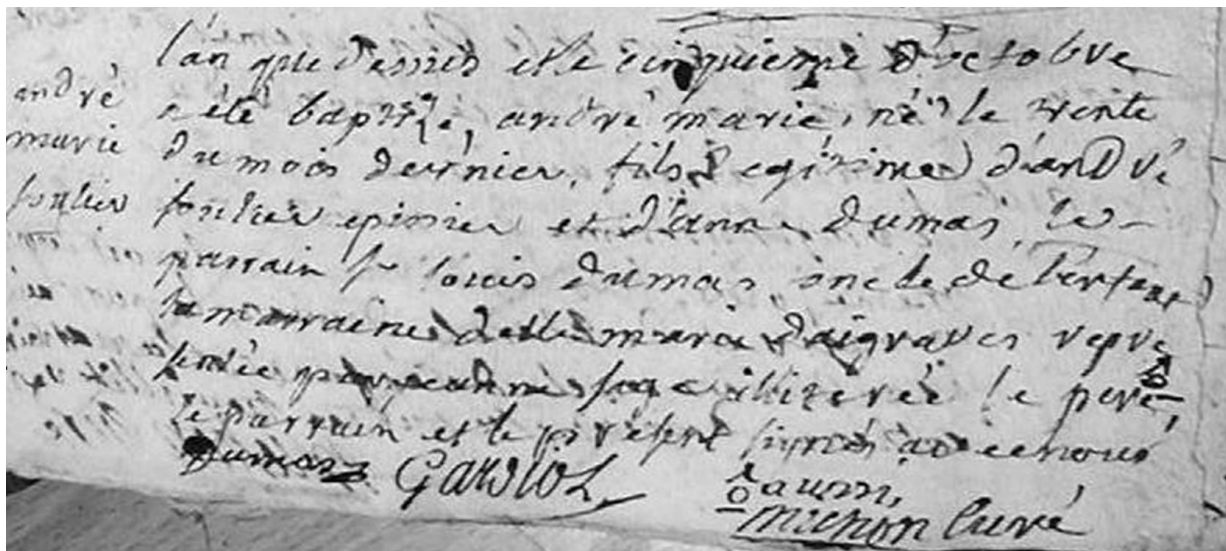 andré
marie
soulier
l'an que dessus et le cinquieme d'octobve
a été baptisé, andré marie, né le trente
du mois dernier, fils legitime d'andvé
soulier epinier et d'anne dumas, le
parrain sr louis dumas oncle de l'enfant
la marraine delle marie daigraves repvé
sentée par jeanne illiterée le pere,
le parrain et le présent signés avec nous
Dumas
aumr,
michon Curé